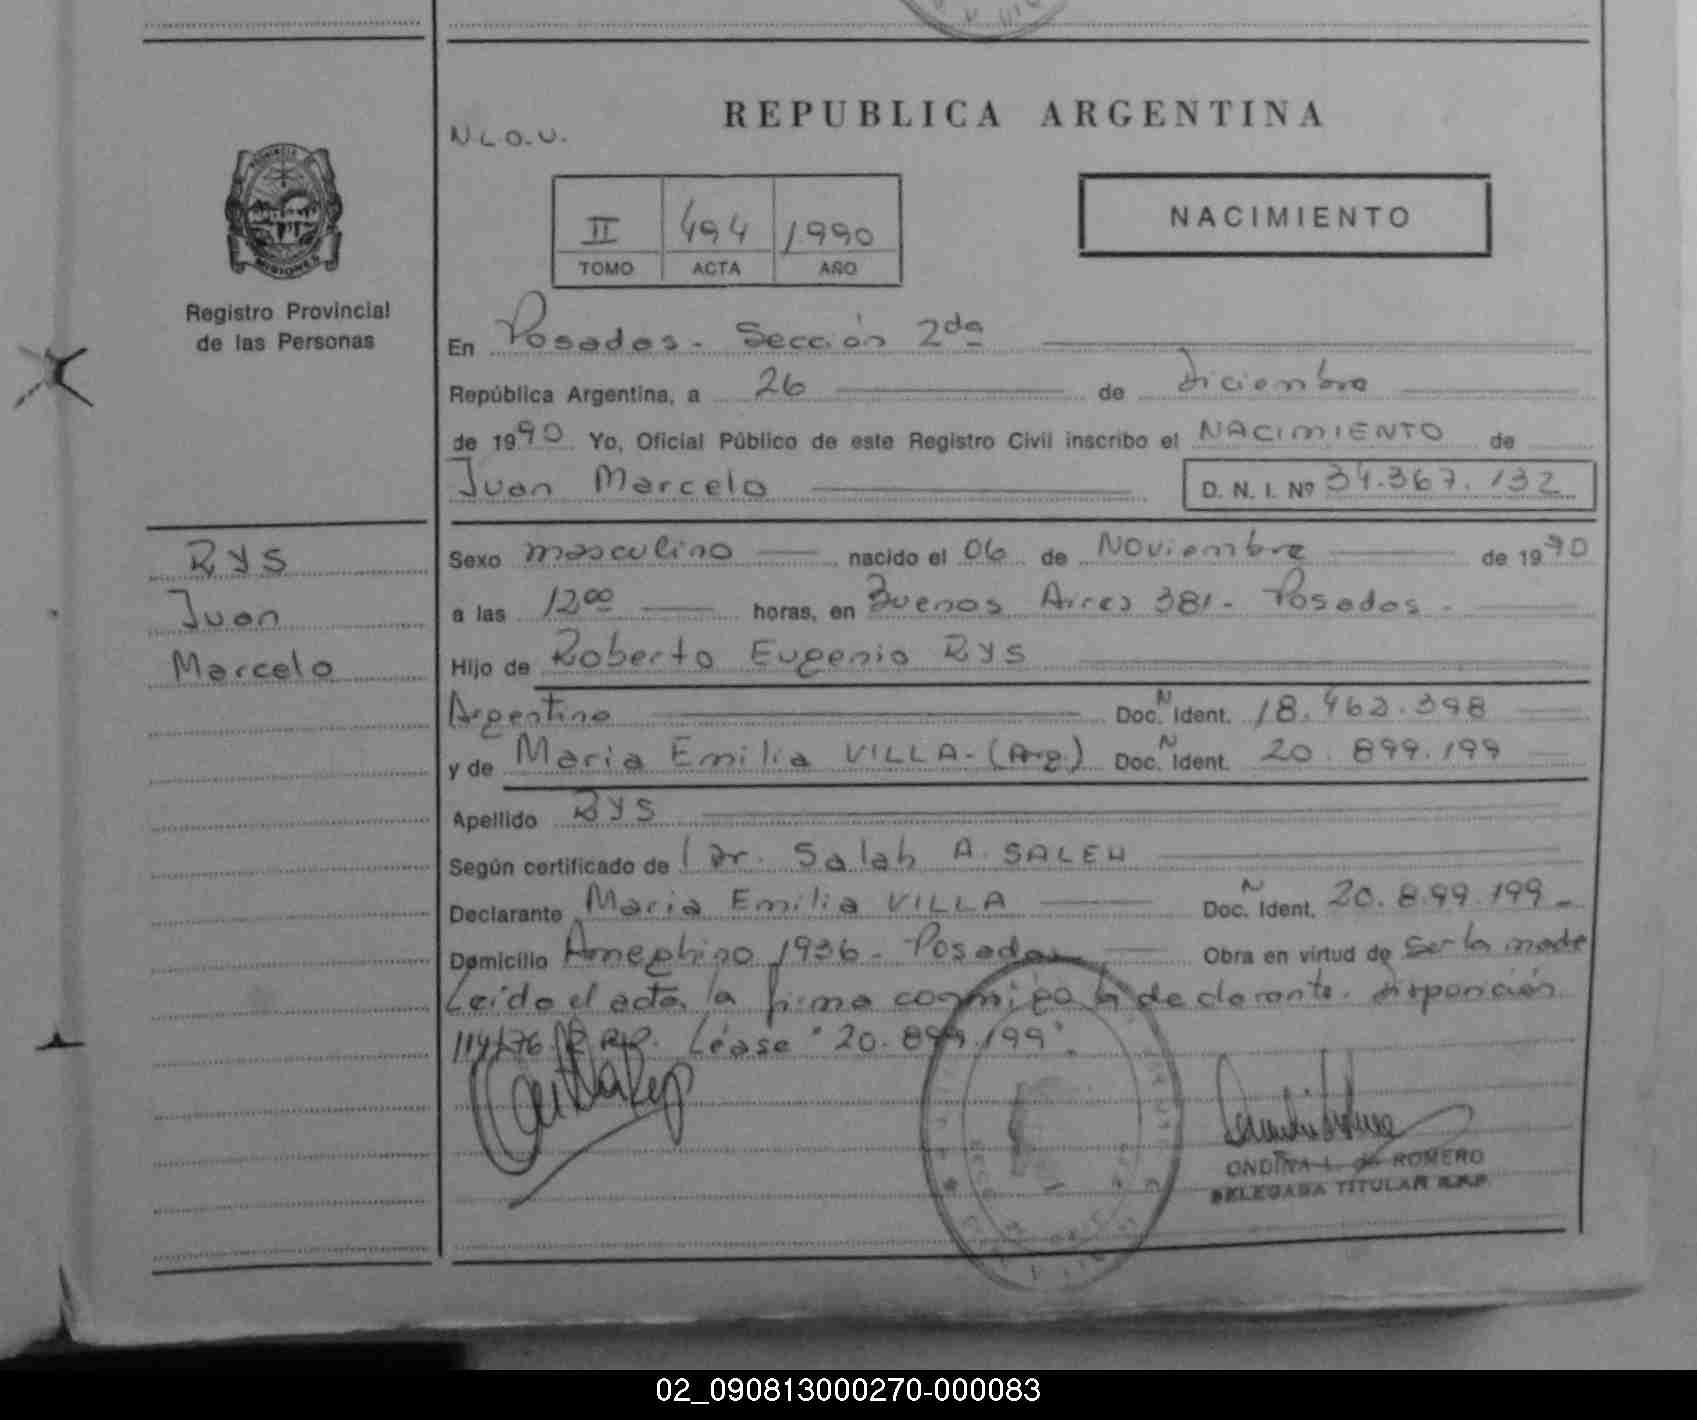 REPUBLICA ARGENTINA
N.L.O.U.
II 494 1990
TOMO ACTA AÑO
NACIMIENTO
PROVINCIA DE
MISIONES
Registro Provincial
de las Personas
En Posadas - Sección 2da
República Argentina, a 26 de Diciembre
de 1990 Yo, Oficial Público de este Registro Civil inscribo el NACIMIENTO de
Juan Marcelo D. N. I. Nº 34.367.132
RYS
Juan
Marcelo
Sexo masculino nacido el 06 de Noviembre de 1990
a las 12 00 horas, en Buenos Aires 381 - Posadas -
Hijo de Roberto Eugenio RYS
Argentino Doc. N Ident. 18.462.398
y de Maria Emilia VILLA - (Arg.) Doc. N Ident. 20.899.199
Apellido RYS
Según certificado de Dr. Salah A. SALEH
Declarante Maria Emilia VILLA Doc. N Ident. 20.899.199 -
Domicilio Ameghino 1936 - Posadas Obra en virtud de ser la madre
Leída el acta, la firma conmigo la declarante. Disposición
114/76 R.P.P. Léase "20.899.199".
ONDINA L. de ROMERO
DELEGADA TITULAR R.P.P.
02_090813000270-000083